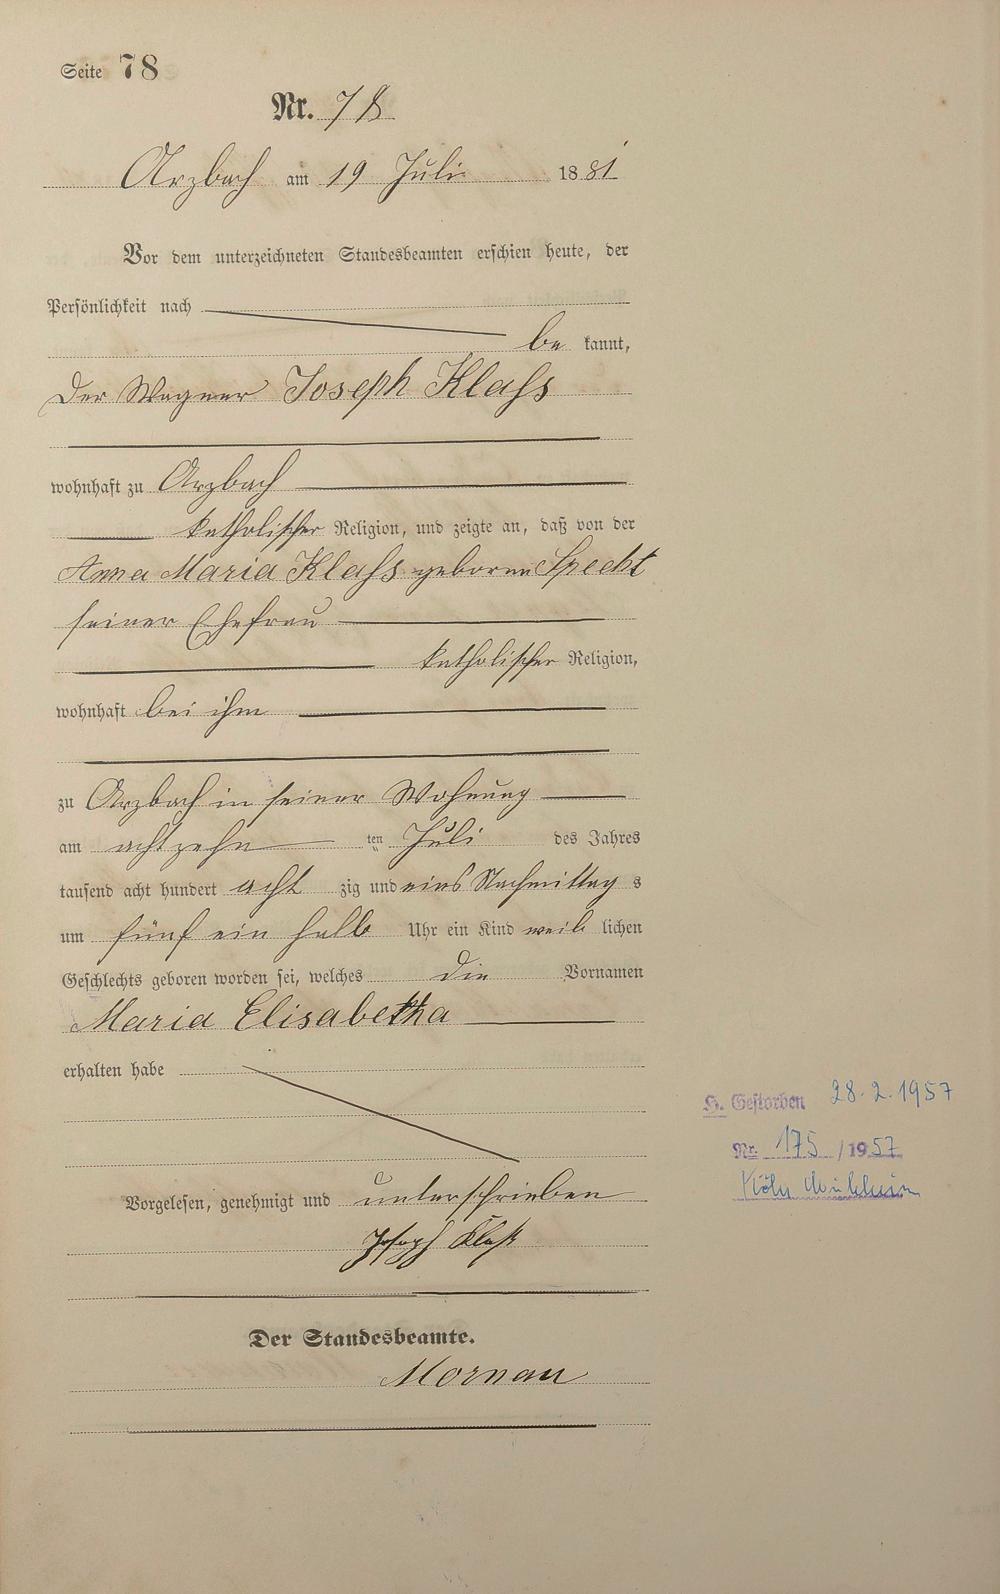 Seite 78
Nr. 78
Arzbach am 19 Juli 1881
Vor dem unterzeichneten Standesbeamten erschien heute, der
Persönlichkeit nach
bekannt,
der Wagner Joseph Klaß
wohnhaft zu Arzbach
katholischer Religion, und zeigte an, daß von der
Anna Maria Klaß geborene Specht
seiner Ehefrau
katholischer Religion,
wohnhaft bei ihm
zu Arzbach in seiner Wohnung
am achtzehn ten Juli des Jahres
tausend acht hundert achtzig und eins Nachmittags
um fünf ein halb Uhr ein Kind weiblichen
Geschlechts geboren worden sei, welches die Vornamen
Maria Elisabetha
erhalten habe
H. Gestorben 28.2.1957
Nr. 175 / 1957
Köln Mülheim
Vorgelesen, genehmigt und unterschrieben
Joseph Klaß
Der Standesbeamte.
Mornau